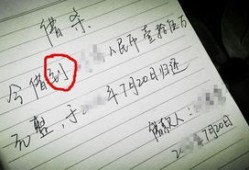 借条
今借到 人民币壹拾伍万
元整,于 年7月20日归还
借款人:
2 年7月20日